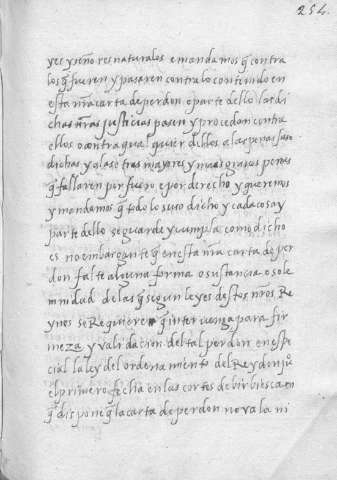 254.
yes y señores naturales e mandamos q̃ contra
los q̃ fueren y pasaren contra lo contenido en
esta nr̃a carta de perdon o parte dello las di
chas nr̃as justicias pasen y procedan contra
ellos o contra qual quier dellos a las penas suso
dichas y a las otras mayores y mas graves penas
q̃ fallaren por fuero e por derecho y queremos
y mandamos q̃ todo lo suso dicho y cada cosa y
parte dello se guarde y cumpla como dicho
es no embargante q̃ en esta nr̃a carta de per
don falte alguna forma o sustancia o sole
mnidad de las q̃ segun leyes destos nr̃os Re
ynos se Requiere q̃ intervenga para fir
meza y validacion del tal perdon en espe
cial la ley del ordenamiento del Rey don juº
el primero fecha en las cortes de birbiesca en
q̃ dispone q̃ la carta de perdon no vala ni